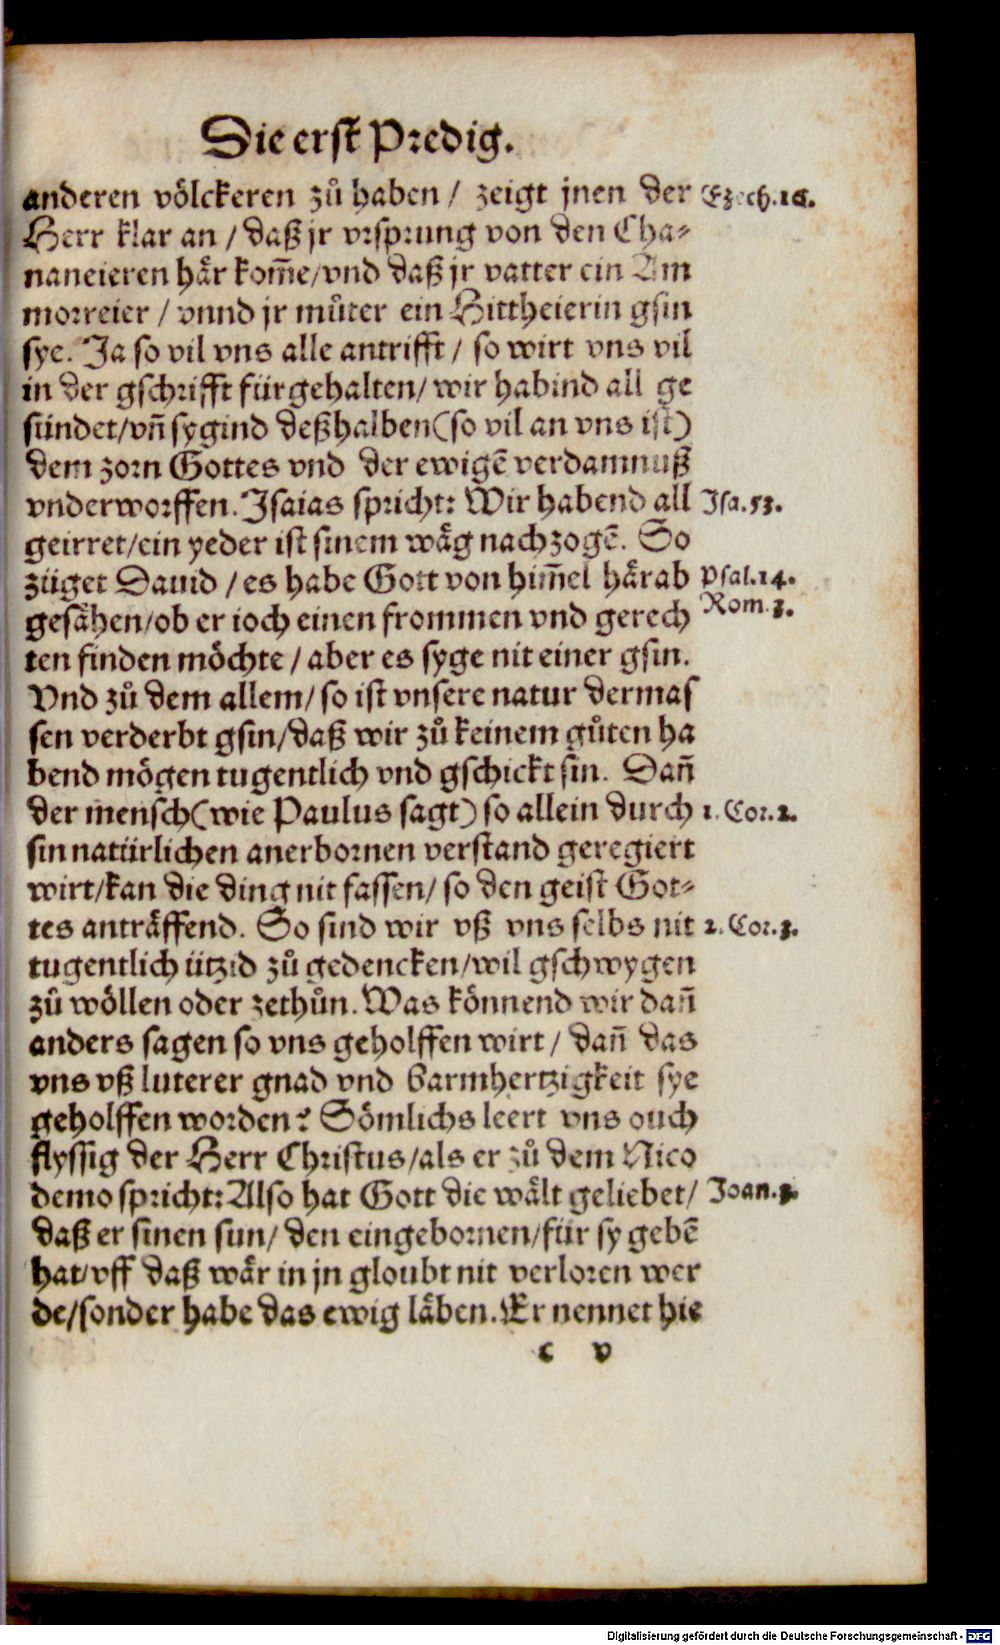 Die erst Predig.
anderen völckeren zů haben / zeigt jnen der Ezech.16.
Herr klar an / daß jr vrsprung von den Cha-
naneieren här kom̃e/vnd daß jr vatter ein Am
morreier / vnnd jr můter ein Hittheierin gsin
sye. Ja so vil vns alle antrifft / so wirt vns vil
in der gschrifft fürgehalten/ wir habind all ge
sündet/vn̄ sygind deßhalben (so vil an vns ist)
dem zorn Gottes vnd der ewigē verdamnuß
vnderworffen. Isaias spricht: Wir habend all Isa.53.
geirret/ein yeder ist sinem wäg nachzogē. So
züget Dauid / es habe Gott von him̃el härab Psal.14.
gesähen/ob er ioch einen frommen vnd gerech Rom.3.
ten finden möchte / aber es syge nit einer gsin.
Vnd zů dem allem/ so ist vnsere natur dermas
sen verderbt gsin/daß wir zů keinem gůten ha
bend mögen tugentlich vnd gschickt sin. Dan̄
der mensch (wie Paulus sagt) so allein durch 1. Cor.2.
sin natürlichen anerbornen verstand geregiert
wirt/kan die ding nit fassen/ so den geist Got-
tes anträffend. So sind wir vß vns selbs nit 2. Cor.3.
tugentlich ützid zů gedencken/wil gschwygen
zů wöllen oder zethůn. Was könnend wir dan̄
anders sagen so vns geholffen wirt / dan̄ das
vns vß luterer gnad vnd barmhertzigkeit sye
geholffen worden? Sömlichs leert vns ouch
flyssig der Herr Christus/als er zů dem Nico
demo spricht: Also hat Gott die wält geliebet/ Joan.3.
daß er sinen sun/ den eingebornen/für sy gebē
hat/vff daß wär in jn gloubt nit verloren wer
de/sonder habe das ewig läben. Er nennet hie
c v
Digitalisierung gefördert durch die Deutsche Forschungsgemeinschaft - DFG